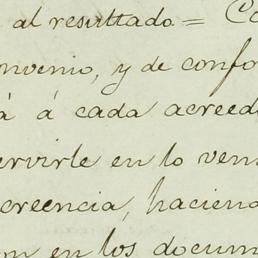 al resultado = Co
nvenio, y de confo
á á cada acreed
ervirle en lo veni
creencia, haciend
on en los docum